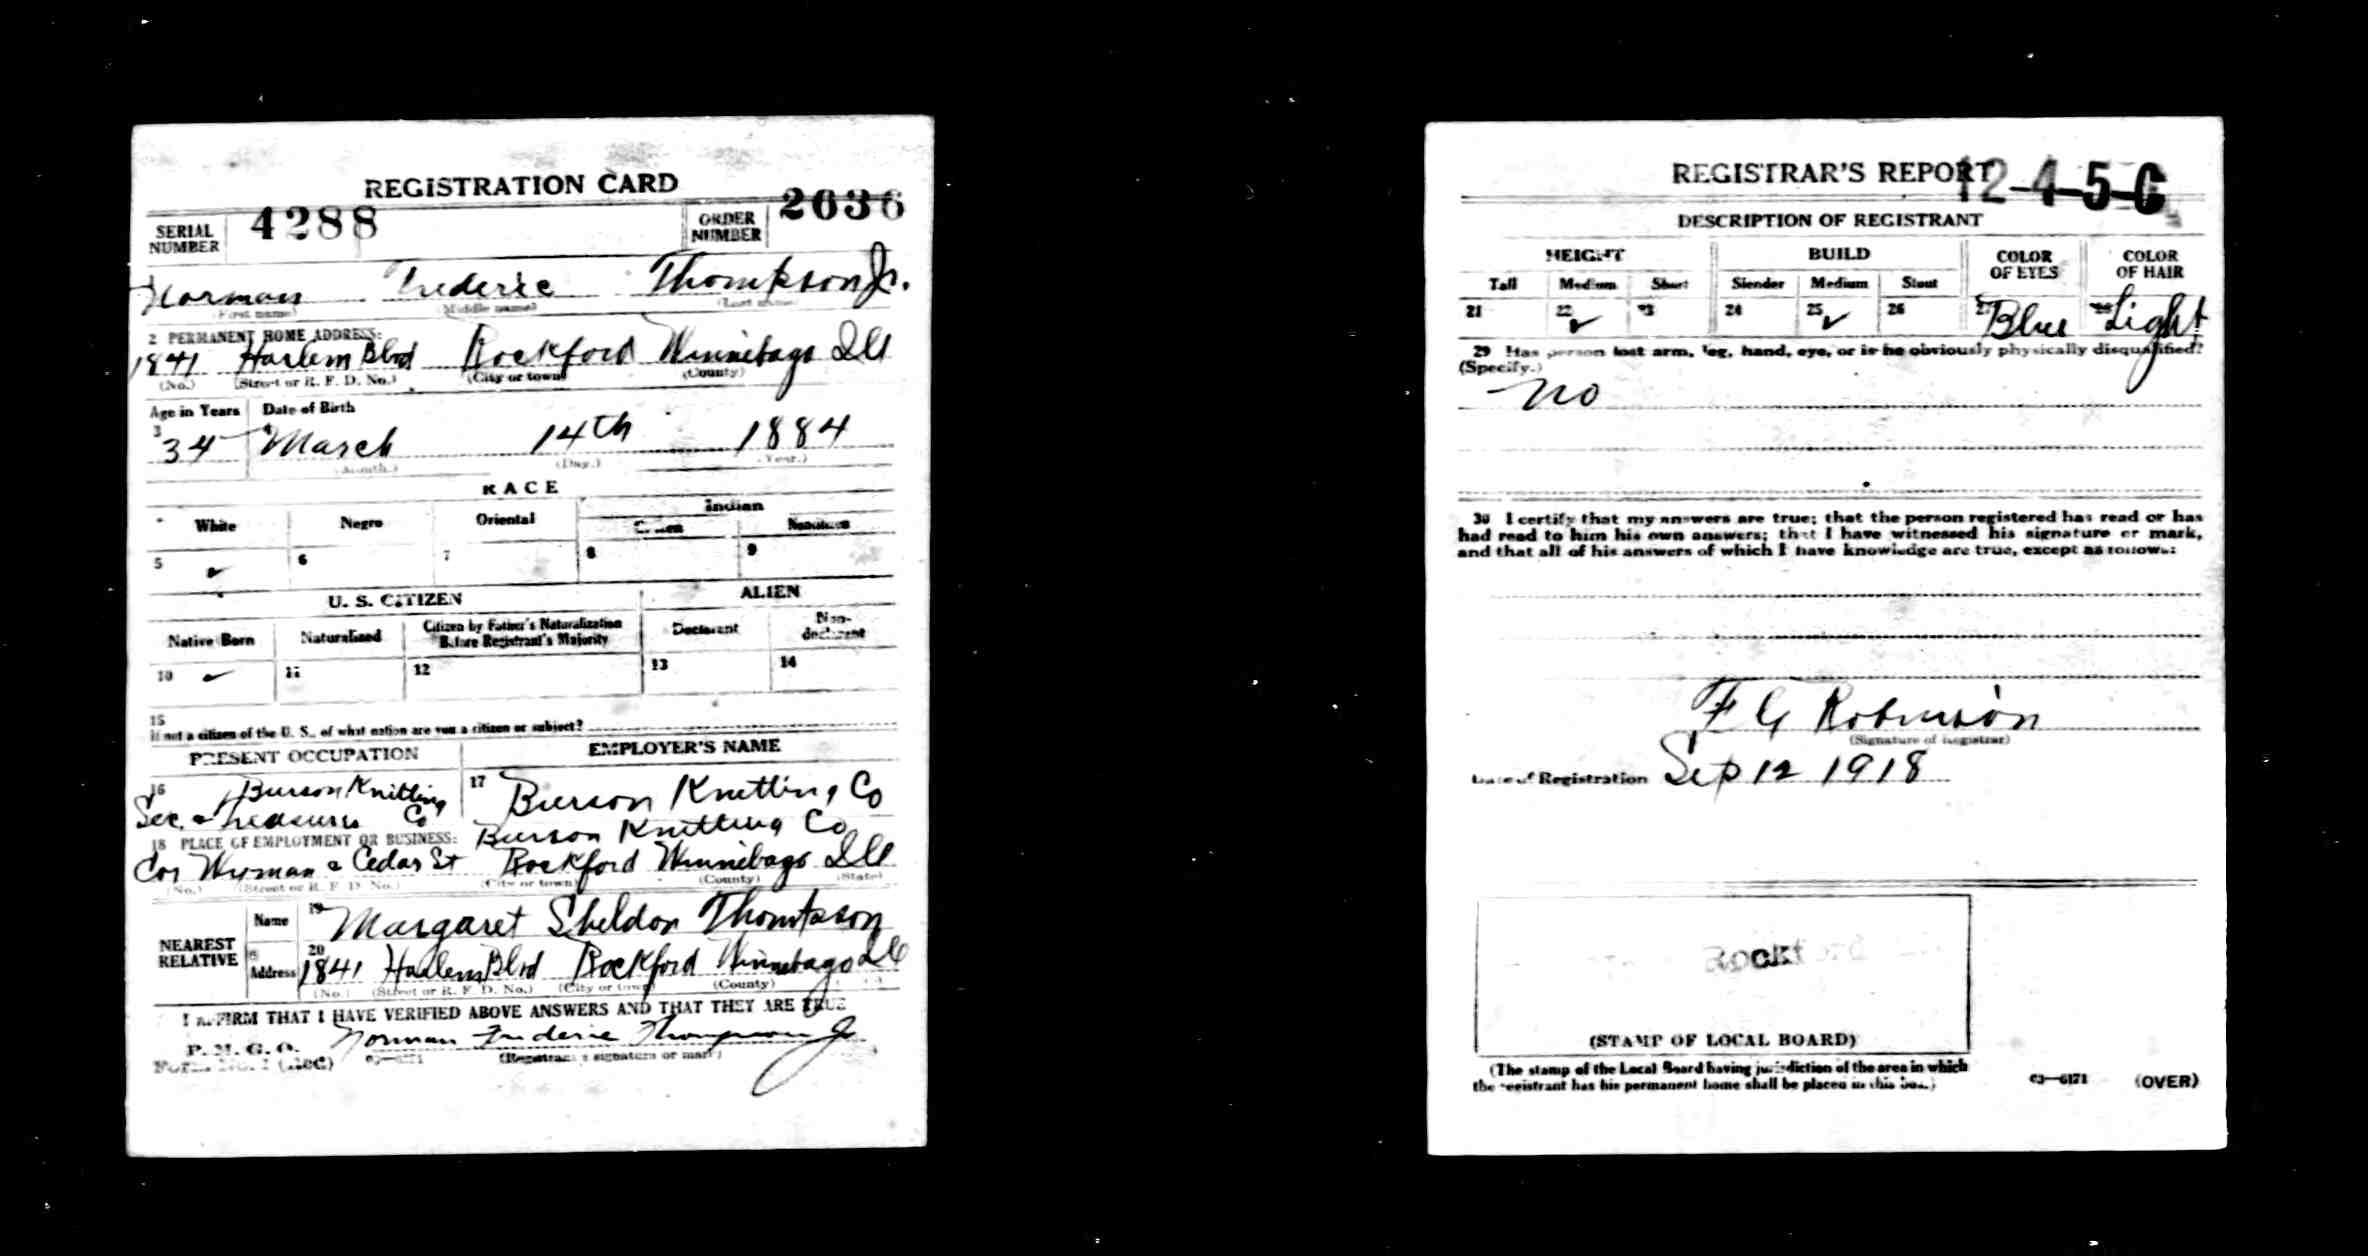 REGISTRATION CARD
SERIAL NUMBER 4288 ORDER NUMBER 2636
1 Norman Frederic Thompson Jr.
(First name) (Middle name) (Last name)
2 PERMANENT HOME ADDRESS:
1841 Harlem Blvd Rockford Winnebago Ill
(No.) (Street or R. F. D. No.) (City or town) (County)
Age in Years Date of Birth
3 34 4 March 14th 1884
(Month.) (Day.) (Year.)
RACE
White Negro Oriental Indian
Citizen Noncitizen
5 ✓ 6 7 8 9
U. S. CITIZEN ALIEN
Native Born Naturalized Citizen by Father's Naturalization Before Registrant's Majority Declarant Non-declarant
10 ✓ 11 12 13 14
15
If not a citizen of the U. S., of what nation are you a citizen or subject?
PRESENT OCCUPATION EMPLOYER'S NAME
16 Burson Knitting Co Sec. & Treasurer 17 Burson Knitting Co
18 PLACE OF EMPLOYMENT OR BUSINESS: Burson Knitting Co
Cor Wyman & Cedar St Rockford Winnebago Ill
(No.) (Street or R. F. D. No.) (City or town) (County) (State)
NEAREST RELATIVE Name 19 Margaret Sheldon Thompson
Address 20 1841 Harlem Blvd Rockford Winnebago Ill
(No.) (Street or R. F. D. No.) (City or town) (County)
I AFFIRM THAT I HAVE VERIFIED ABOVE ANSWERS AND THAT THEY ARE TRUE
P. M. G. O.
Form No. 1 (Red) 03—6171 Norman Frederic Thompson Jr
(Registrant's signature or mark)
REGISTRAR'S REPORT
12-4-5-C
DESCRIPTION OF REGISTRANT
HEIGHT BUILD COLOR OF EYES COLOR OF HAIR
Tall Medium Short Slender Medium Stout
21 22 ✓ 23 24 25 ✓ 26 27 Blue 28 Light
29 Has person lost arm, leg, hand, eye, or is he obviously physically disqualified?
(Specify.)
no
30 I certify that my answers are true; that the person registered has read or has
had read to him his own answers; that I have witnessed his signature or mark,
and that all of his answers of which I have knowledge are true, except as follows:
F G Robinson
(Signature of Registrar)
Date of Registration Sep 12 1918
(STAMP OF LOCAL BOARD)
(The stamp of the Local Board having jurisdiction of the area in which
the registrant has his permanent home shall be placed in this box.)
03—6171 (OVER)